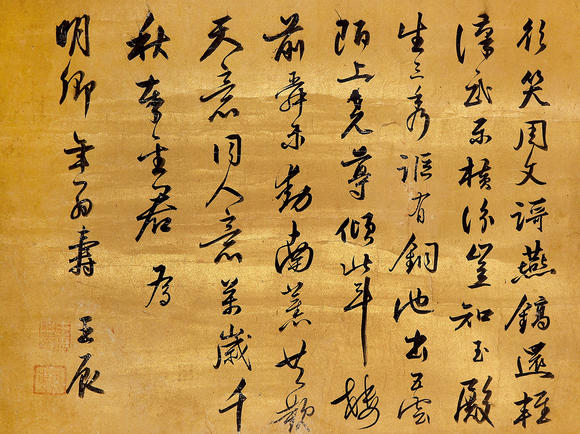 欲笑周文謌燕鎬還輕
漢武樂橫汾豈知玉殿
生三秀詎有銅池出五雲
陌上堯尊傾北斗樓
前舜樂動南薰共歡
天意同人意萬歲千
秋奉聖君 為
明卿年翁壽 王宸